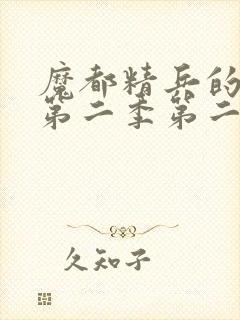 魔都精兵的
第二季第二
久知子